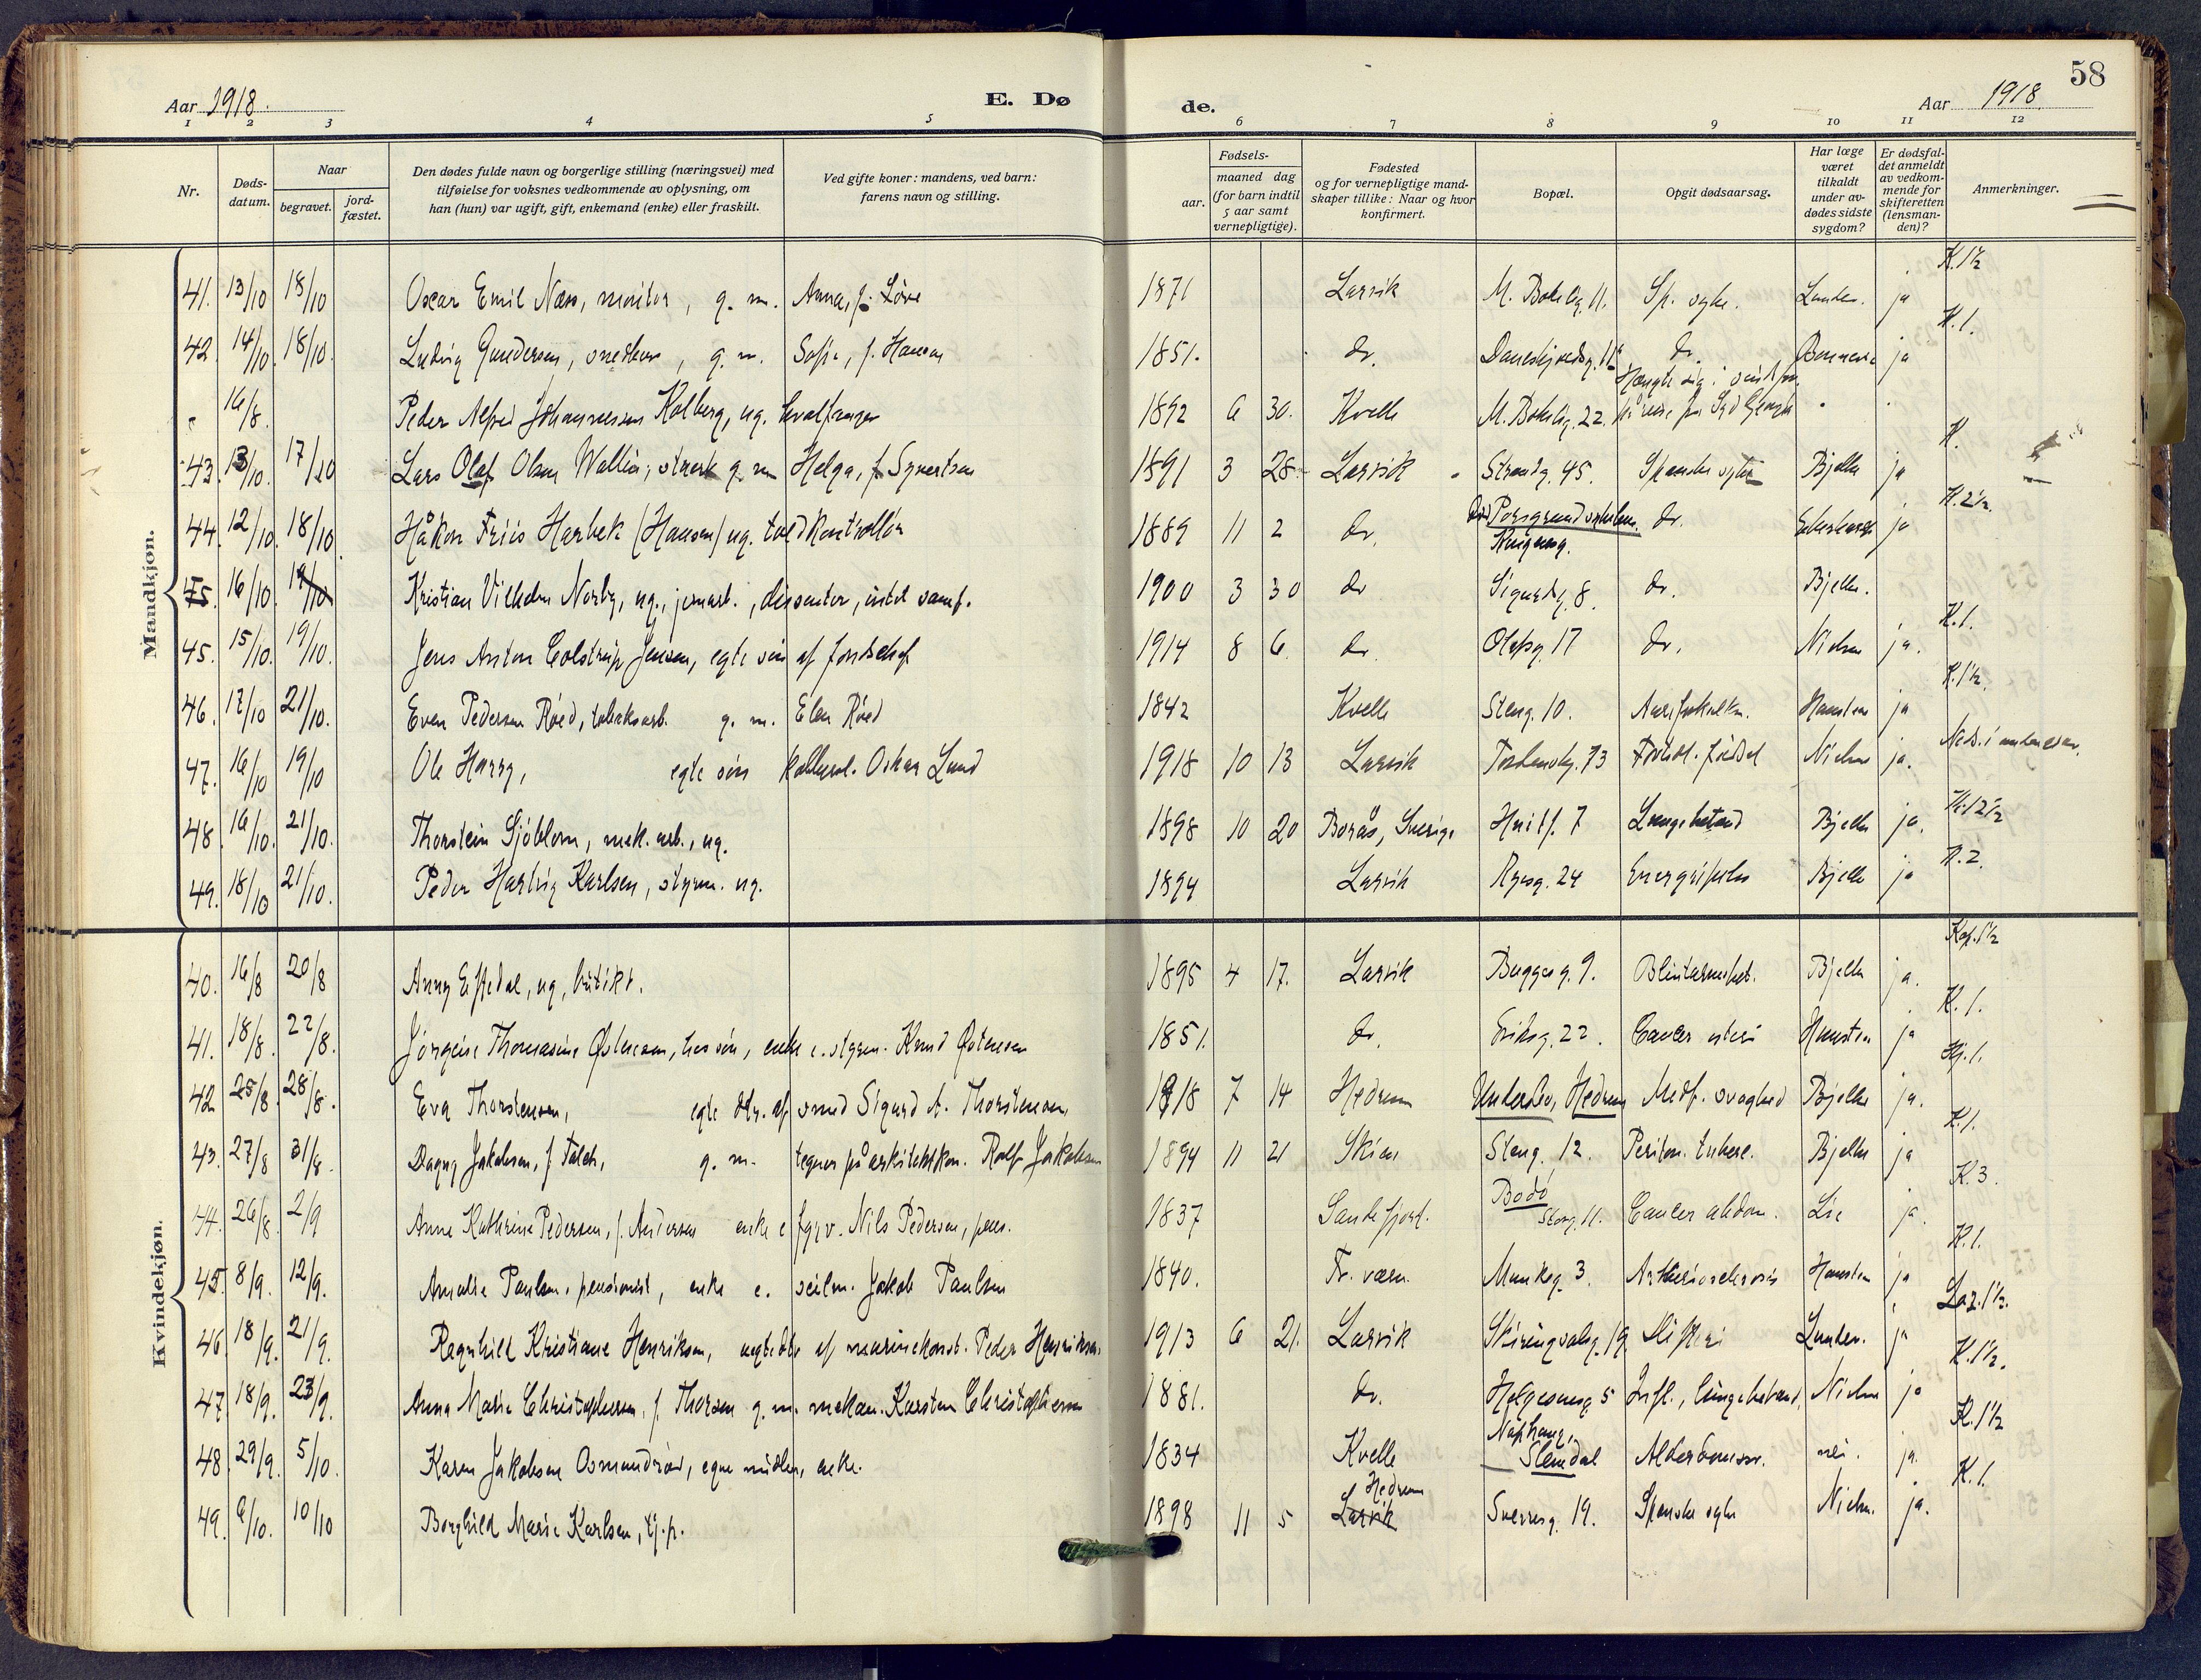 58
Aar 1918. E. Dø de. Aar 1918.
1 2 3 4 5 6 7 8 9 10 11 12
Nr. Døds-datum. Naar begravet. jord-fæstet. Den dødes fulde navn og borgerlige stilling (næringsvei) med tilføielse for voksnes vedkommende av oplysning, om han (hun) var ugift, gift, enkemand (enke) eller fraskilt. Ved gifte koner: mandens, ved barn: farens navn og stilling. aar. Fødsels-maaned dag (for barn indtil 5 aar samt vernepligtige). Fødested og for vernepligtige mand-skaper tillike: Naar og hvor konfirmert. Bopæl. Opgit dødsaarsag. Har læge været tilkaldt under av-dødes sidste sygdom? Er dødsfal-det anmeldt av vedkom-mende for skifteretten (lensman-den)? Anmerkninger.
Mandkjøn.
41. 13/10 18/10 Oscar Emil Næss, montør, g. m. Anna, f. Löve 1871 Larvik Sp. syke. Lunder. ja K. 1½
42. 14/10. 18/10. Ludvig Gundersen, snedker, g. m. Sofie, f. Hansen 1851. do. do. ja K. 1.
" 16/8. Peder Alfred Johannessen Kolberg, ug. hvalfanger 1892 6 30. Kvelle 22.
43. 13/10. 17/10 Lars Olaf Olsen Wallin, g. m Helga, f. Syvertsen 1891 3 28 Larvik Strandg. 45. Spanske syke Bjelke ja K.
44. 12/10. 18/10. Håkon Friis Harbek (Hansen) ug. toldkontrollör 1889 11 2 do. Død Porsgrund sykehus. Kongensg. do. ja K. 2½.
45. 16/10. 19/10 Kristian Vilhelm Norby, ug., jernarb., dissenter, intet samf. 1900 3 30 do Sigurdsg. 8. do. Bjelke.
45. 15/10. 19/10. Jens Anton Colstrup Jensen, egte sön af 1914 8 6. do. Olafsg. 17 do. Nielsen ja. K. 1.
46. 17/10 21/10. Even Pedersen Röed, tobaksarb. g. m. Elen Röed 1842 Kvelle Steng. 10. ja K. 1½.
47. 16/10 19/10 Ole Harry, egte sön Oskar Lund 1918 10 13 Larvik 73 födsel Nielsen ja.
48. 16/10. 21/10. Thorstein Sjöblom, mek. arb., ug. 1898 10 20 Borås, Sverige 7 Lungebetænd Bjelke ja. K. 2½
49. 18/10 21/10. Peder Hartvig Karlsen, styrm. ug. 1894 Larvik 24 Bjelke ja K. 2.
Kvindekjøn.
40. 16/8 20/8 Anny Eftedal, ug, butikt. 1895 4 17. Larvik Buggesg. 9. Blintarmsbet. Bjelke ja. Kap. 1½
41. 18/8. 22/8. Jörgine Thomasine Østensen, enke e. styrm. Knud Østensen 1851. do. Eriksg. 22. Cancer uteri ja K. 1.
42 25/8. 28/8. Eva Thorstensen, egte dtr. af smed Sigurd A. Thorstensen, 1918 7 14 Hedrum Hedrum Medf. svaghed Bjelke ja. Kj. 1.
43. 27/8 31/8. Dagny Jakobsen, f. Falch, g. m. tegner på arkitektkon. Rolf Jakobsen 1894 11 21 Skien Steng. 12. Periton. tuberc. Bjelke ja K. 1.
44. 26/8. 2/9 Anne Kathrine Pedersen, f. Andersen enke e fyrv. Nils Pedersen, pens. 1837 Sandefjord. Bodö Storg. 11. Cancer abdom. Lie ja. K. 3.
45. 8/9. 12/9. Amalie Paulsen, pensionist, enke e. seilm. Jakob Paulsen 1840. Fr. værn. Munkeg. 3. Arteriosclerosis ja K. 1.
46. 18/9. 21/9. Ragnhild Kristiane Henriksen, af Peder Henriksen 1913 6 21. Larvik Skiringsalsg. 19. Difteri Lunder. ja Laz. 1½.
47. 18/9. 23/9. Anna Marie Christophersen, f. Thorsen g. m. mekan. Karsten Christophersen 1881. do. Helgesensg. 5 Infl., lungebetænd. Nielsen ja K. 1½.
48. 29/9. 5/10. Karen Jakobsen Osmundröd, egne midler, enke. 1834 Kvelle Slemdal Alderdomssv. nei. ja. K. 1½
49. 6/10. 10/10 Borghild Marie Karlsen, tj. p. 1898 11 5 Larvik Hedrum Sverresg. 19. Spanske syke Nielsen. ja. K. 1.